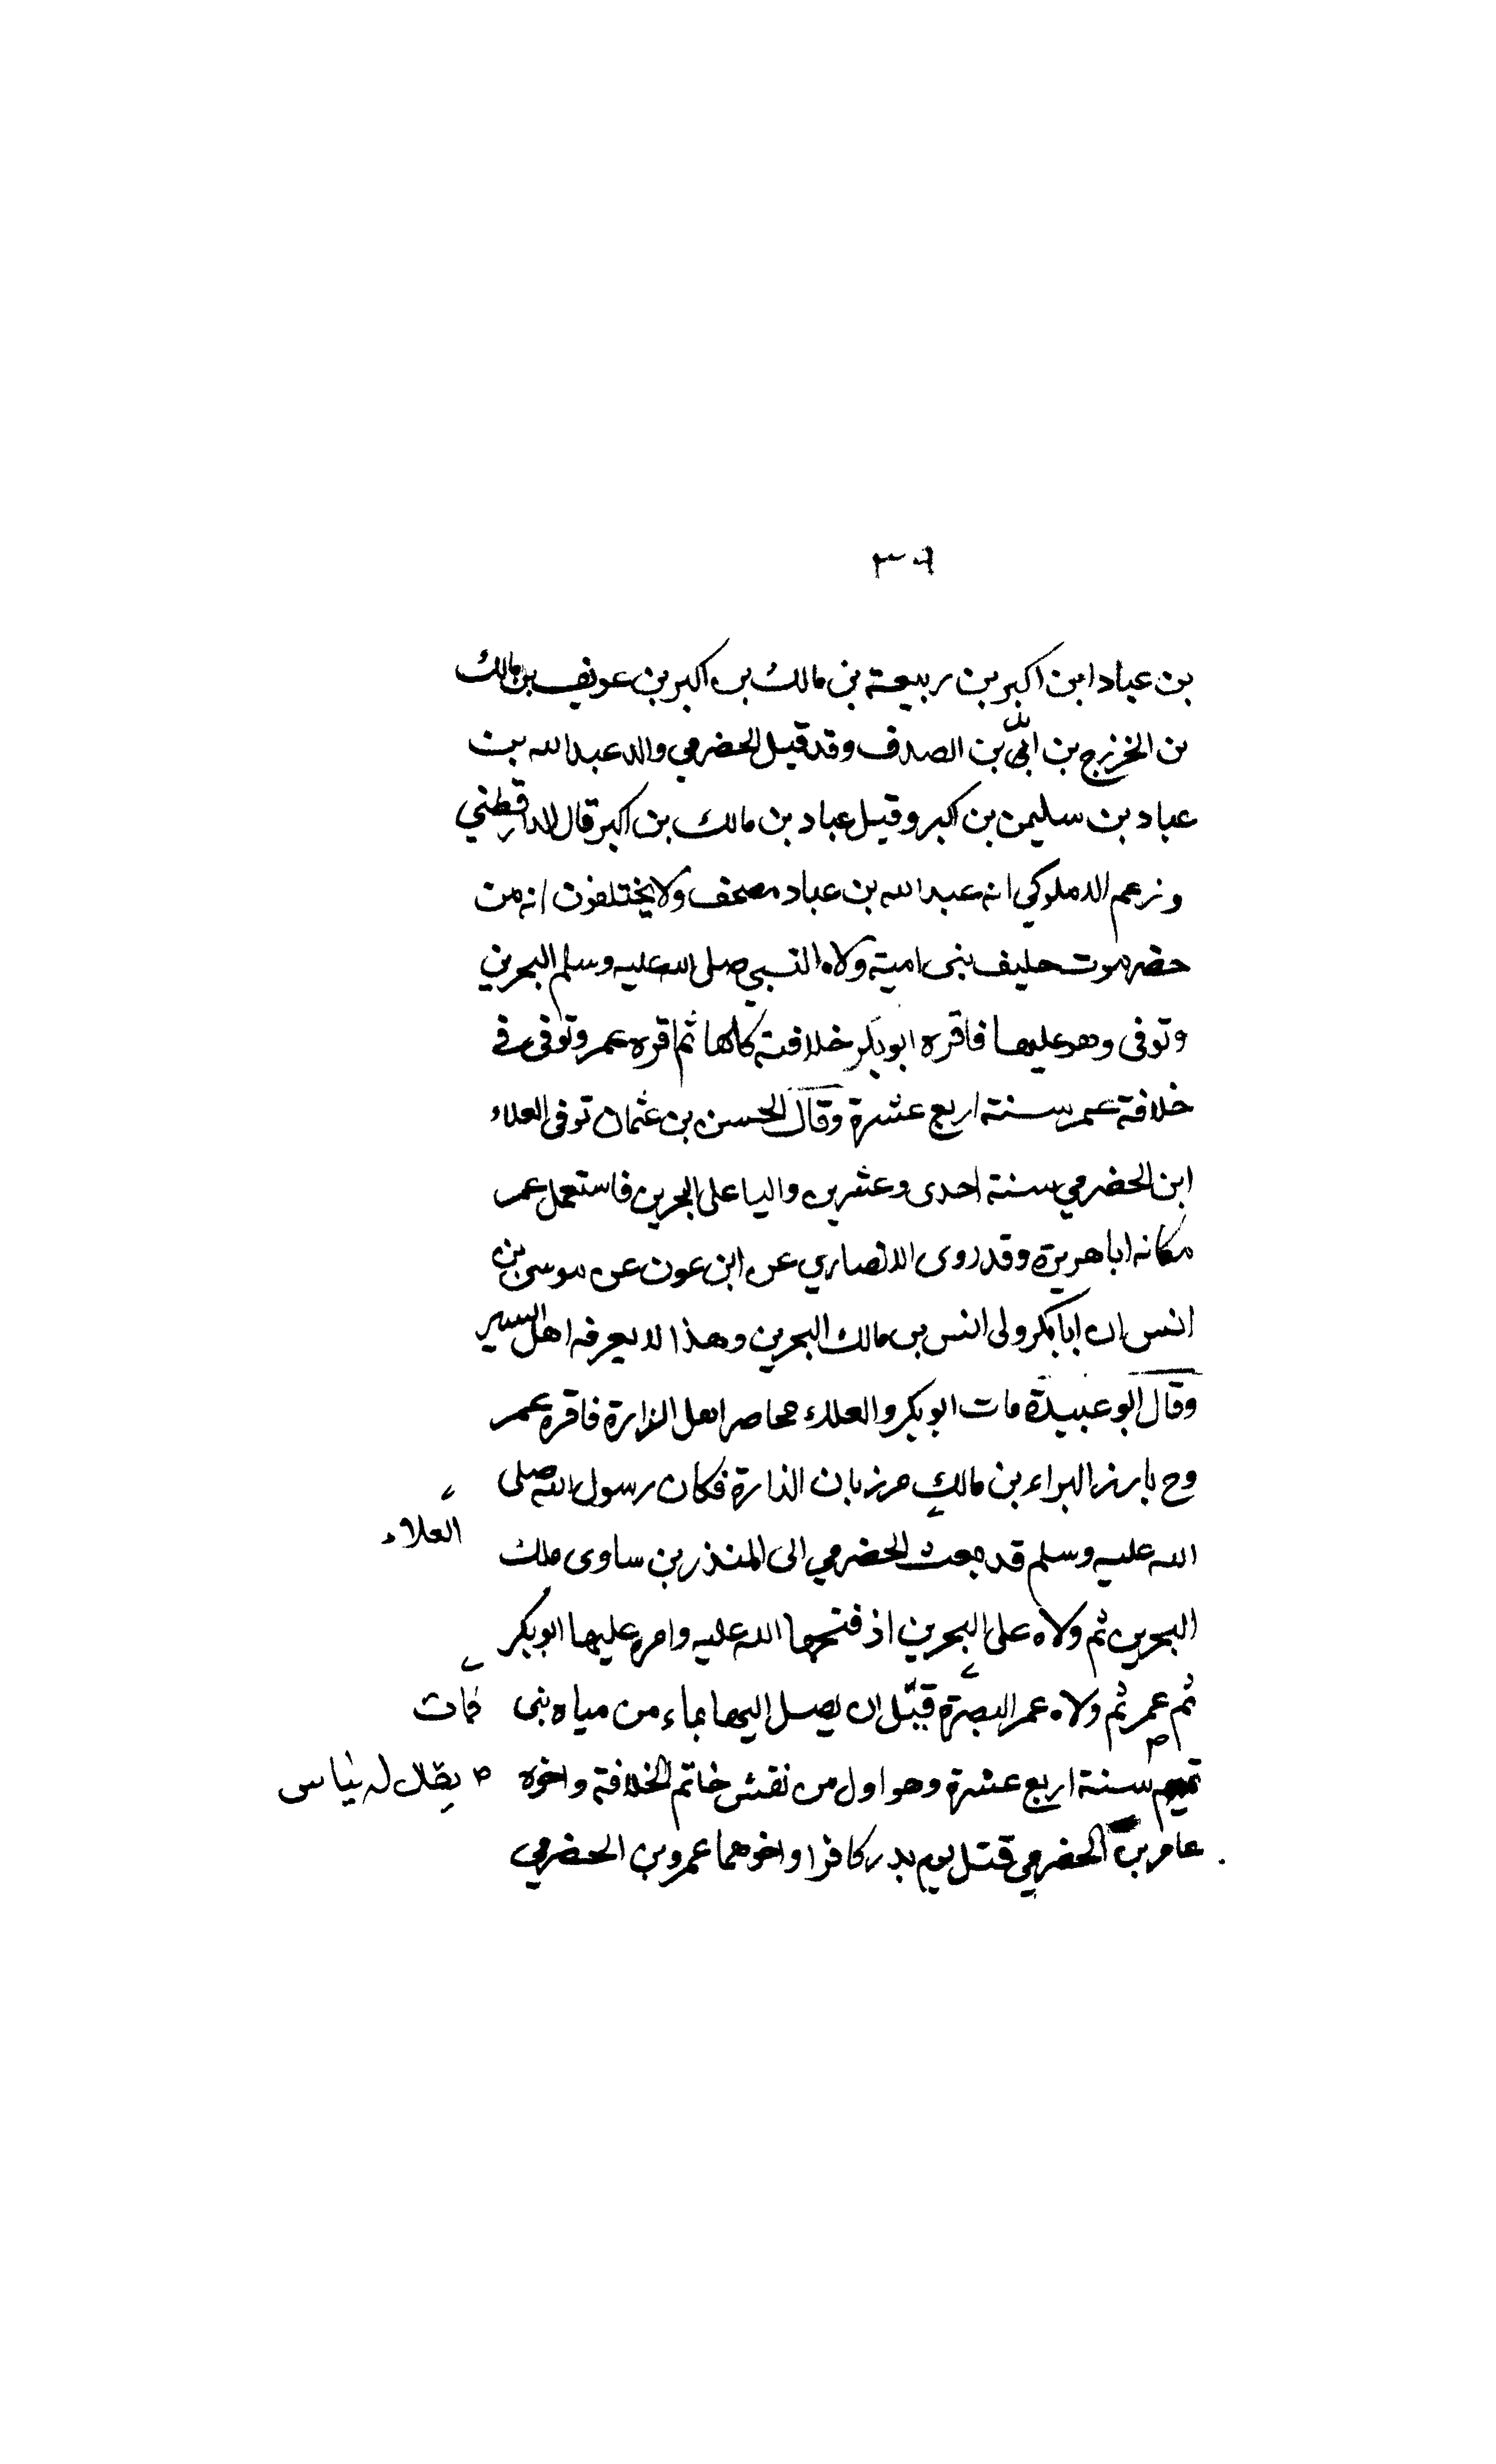 ٣٠٩
بن عباد ابن اكبر بن ربيعة بن مالك بن اكبر بن عويف بن مالك
بن الخزرج بن ابيّ بن الصدف وقد قيل الحضرمي والد عبد الله بن
عباد بن سليمن بن اكبر وقيل عباد بن مالك بن اكبر قال الدارقطني
وزعم الاملوكي انه عبد الله بن عباد مصحف ولا يختلفون انه من
حضرموت حليف بنى امية ولاه النبي صلى الله عليه وسلم البحرين
وتوفى وهو عليها فاقره ابو بكر خلافته كلها ثم اقره عمر وتوفى في
خلافة عمر سنة اربع عشرة وقال الحسن بن عثمان توفى العلاء
ابن الحضرمي سنة احدى وعشرين واليا على البحرين فاستعمل عمر
مكانه ابا هريرة وقد روى الانصاري عن ابن عون عن موسى بن
انس ان ابا بكر ولى انس بن مالك البحرين وهذا لا يعرفه اهل السير
وقال ابو عبيدة مات ابو بكر والعلاء محاصر اهل الزارة فاقره عمر
وح بارز البراء بن مالك مرزبان الزارة فكان رسول الله صلى
العلاء
الله عليه وسلم قد بعث الحضرمي الى المنذر بن ساوى ملك
البحرين ثم ولاه على البحرين اذ فتحها الله عليه وامره عليها ابو بكر
ثم عمر ثم ولاه عمر البصرة قبل ان يصل اليها بماء من مياه بنى فمات
تميم سنة اربع عشرة وهو اول من نقش خاتم الخلافة واخوه يقال له
عامر بن الحضرمي قتل يوم بدر كافرا واخوهما عمرو بن الحضرمي